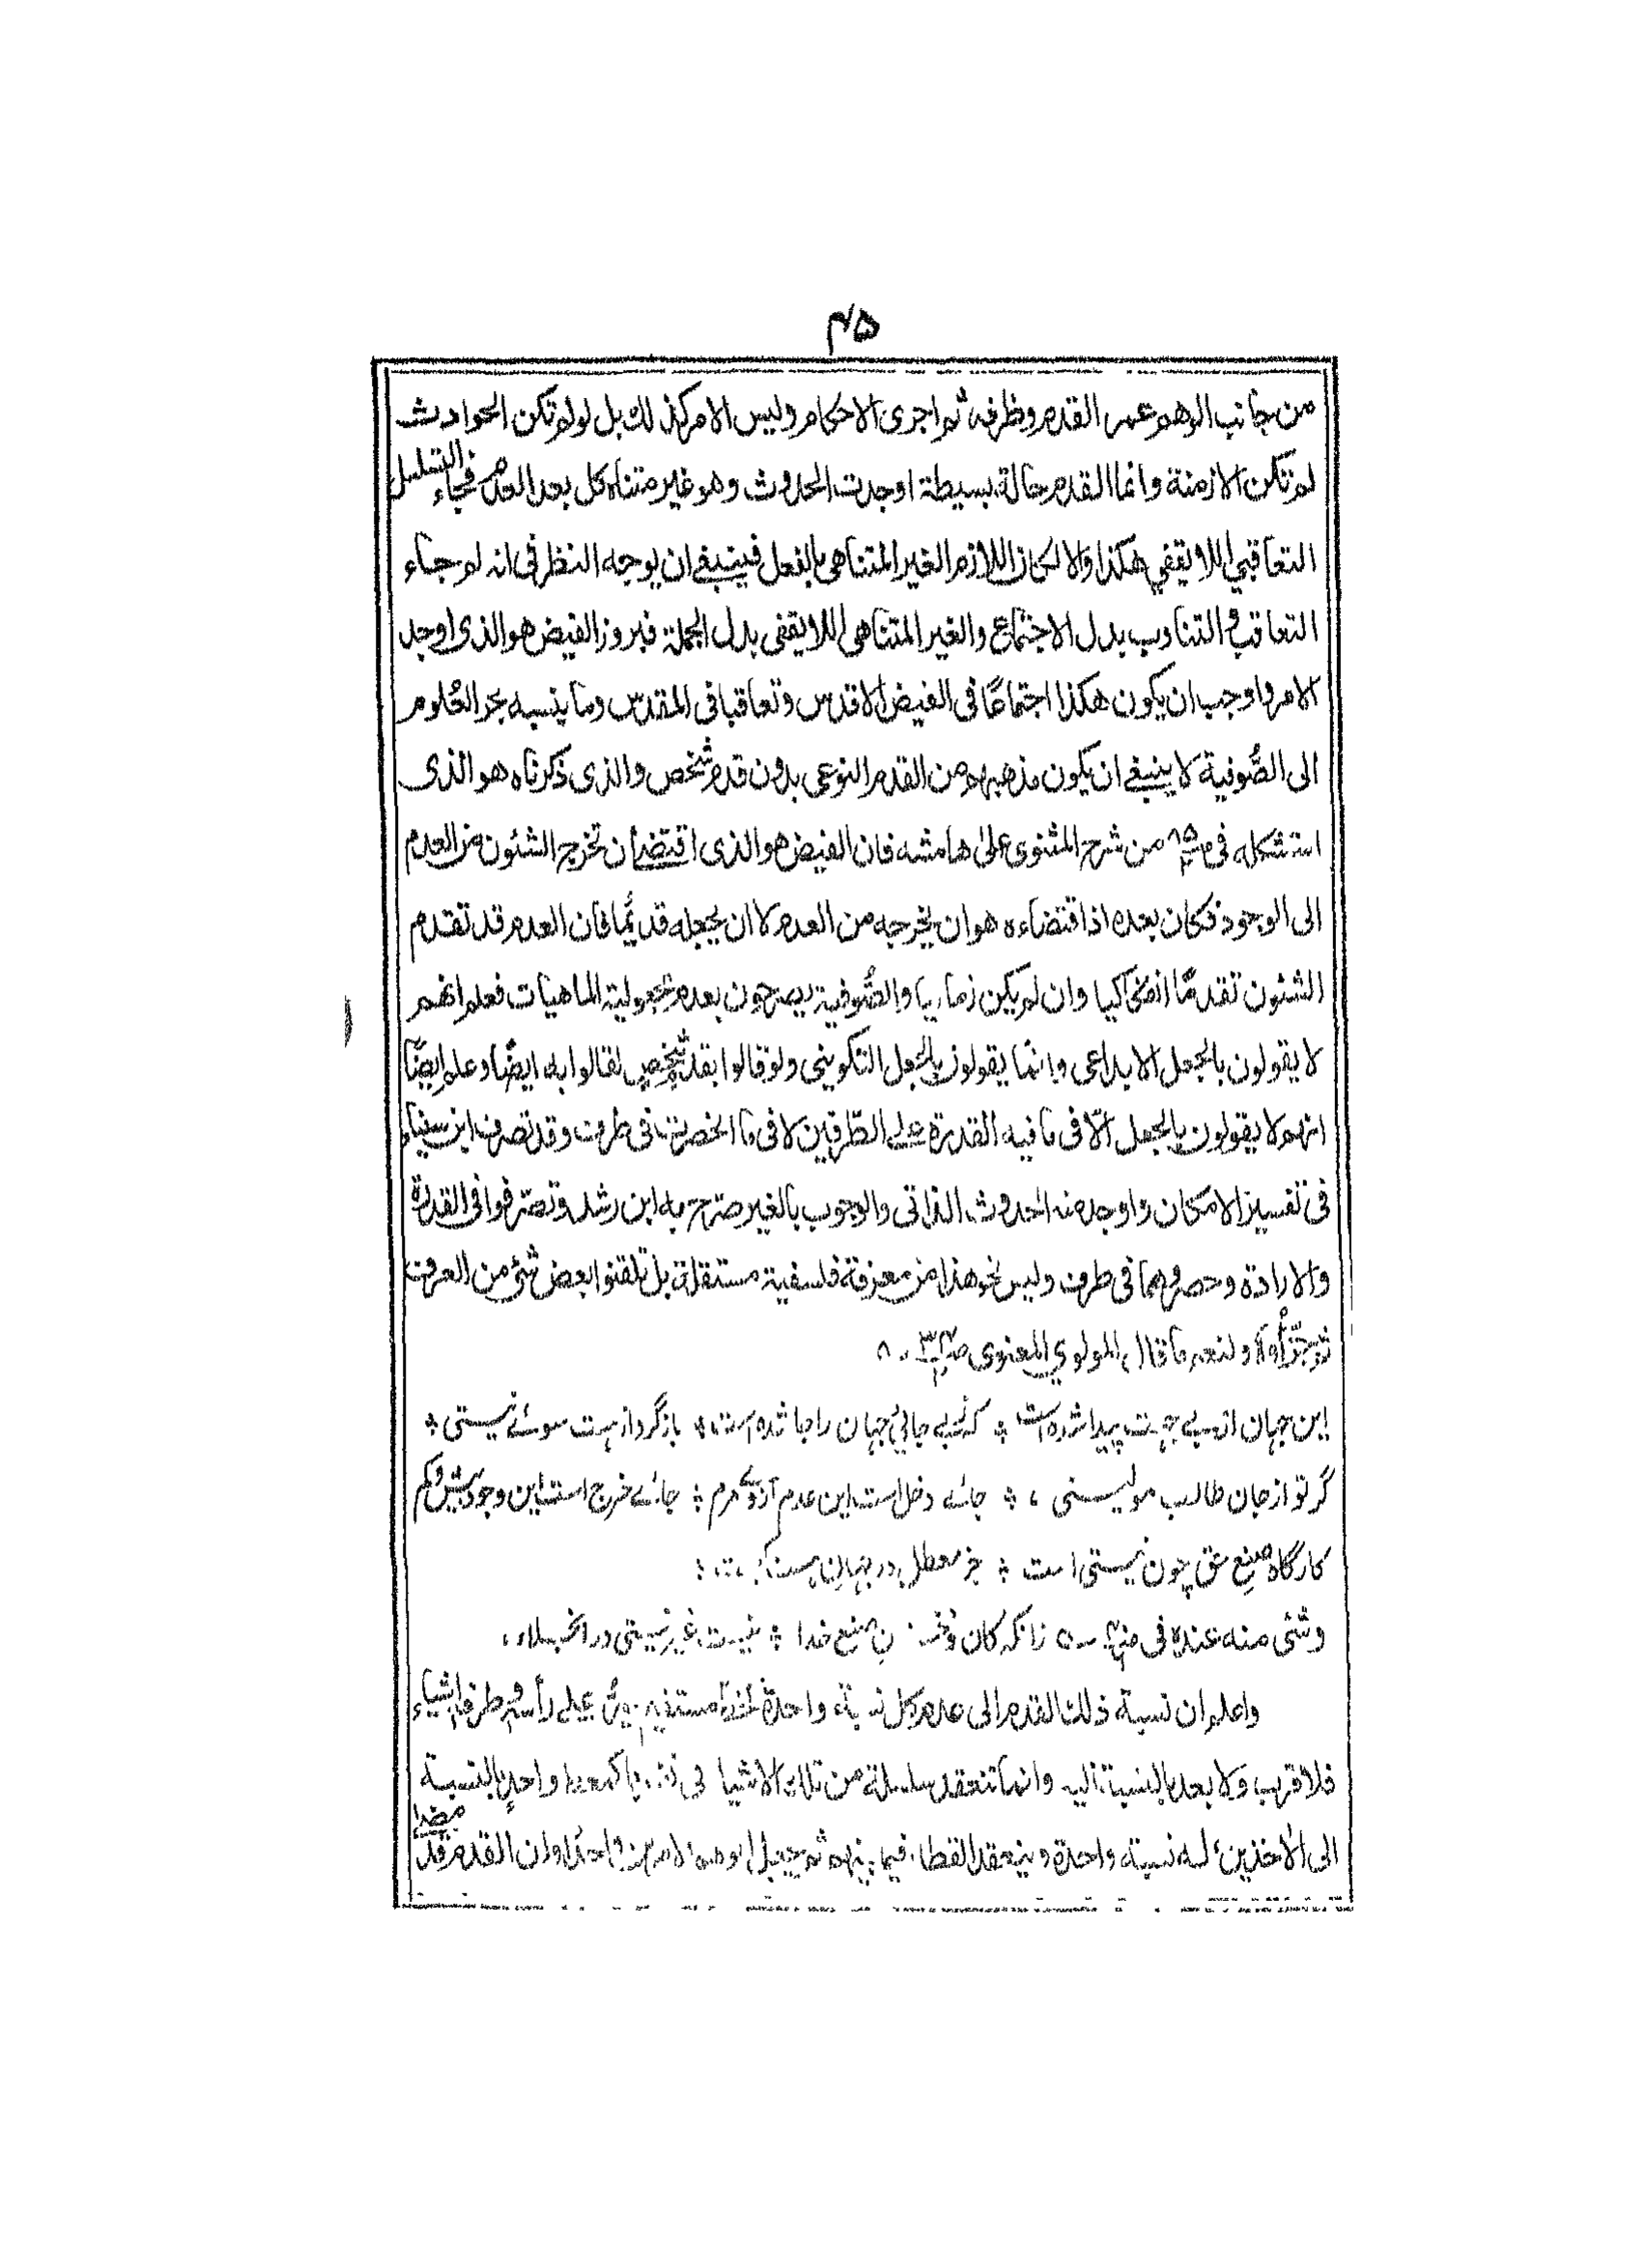 ۴۵
من جانب الوهم عمر القدم وظرفه ثم اجرى الاحكام وليس الامر كذلك بل لو لم تكن الحوادث
لم تكن الازمنة وانما القدم حالة بسيطة اوجدت الحدوث وهو غير متناه كل بعد العدم فجاء التسلسل
التعاقبي اللايقفي هكذا والا لكان اللازم الغير المتناهى بالفعل فينبغي ان يوجه النظر فى انه لم جاء
التعاقب والتناوب بدل الاجتماع والغير المتناهى اللايقفى بدل الجملة فبروز الفيض هو الذى اوجد
الامر واوجب ان يكون هكذا اجتماعًا فى الفيض الاقدس وتعاقبا فى المقدس وما ينسبه بحر العلوم
الى الصُّوفية لا ينبغي ان يكون مذهبهم من القدم النوعى بدون قدم شخص والذى ذكرناه هو الذى
استشكله فى من شرح المثنوى على هامشه فان الفيض هو الذى اقتضى ان تخرج الشئون من العدم
الى الوجود فكان بعده اذ اقتضاءه هو ان يخرجه من العدم لا ان يجعله قديمًا فان العدم قد تقدم
الشئون تقدمًا انفكاكيا وان لم يكن زمانيا والصُّوفية يصرحون بعدم مجعولية الماهيات فعلم انهم
لا يقولون بالجعل الابداعى وانما يقولون بالجعل التكوينى ولو قالوا بقدم شخص لقالوا به ايضًا وعلم ايضًا
انهم لا يقولون بالجعل الّا فى ما فيه القدرة على الطرفين لا فى ما انحصرت فى طرف وقد تصرف ابن سيناء
فى تفسير الامكان واوجد منه الحدوث الذاتى والوجوب بالغير صرح به ابن رشد وتصرفوا فى القدرة
والارادة وحصروهما فى طرف وليس نحو هذا من معرفة فلسفية مستقلة بل تلقنوا بعض شئ من العرف
ولنعم ما قال المولوي المعنوى
این جہان از بے جہت پیدا شده است ❊ کہ ز بے جائی جہان را جا شده است ❊ باز گرد از ہست سوئے نیستی ❊
گر تو از جان طالب مولیستی ❊ جائے دخل است این عدم از وے مرم ❊ جائے خرج است این وجود بیش وکم
کارگاه صنع حق چون نیستی است ❊ جز معطل در جہان ہست کیست
وشئ منه عنده فى زانکہ کان صنع خدا ❊ نیست غیر نیستی در انجلاء
واعلم ان نسبة ذلك القدم الى عدم كل نسبة واحدة على رأسه طرف اشياء
فلا قرب ولا بعد بالنسبة اليه وانما تنعقد سلسلة من تلك الاشياء فى واحد بالنسبة
الى الاخذين له نسبة واحدة وينعقد القطار فيما بينهم ثم وان القدم قد مضى